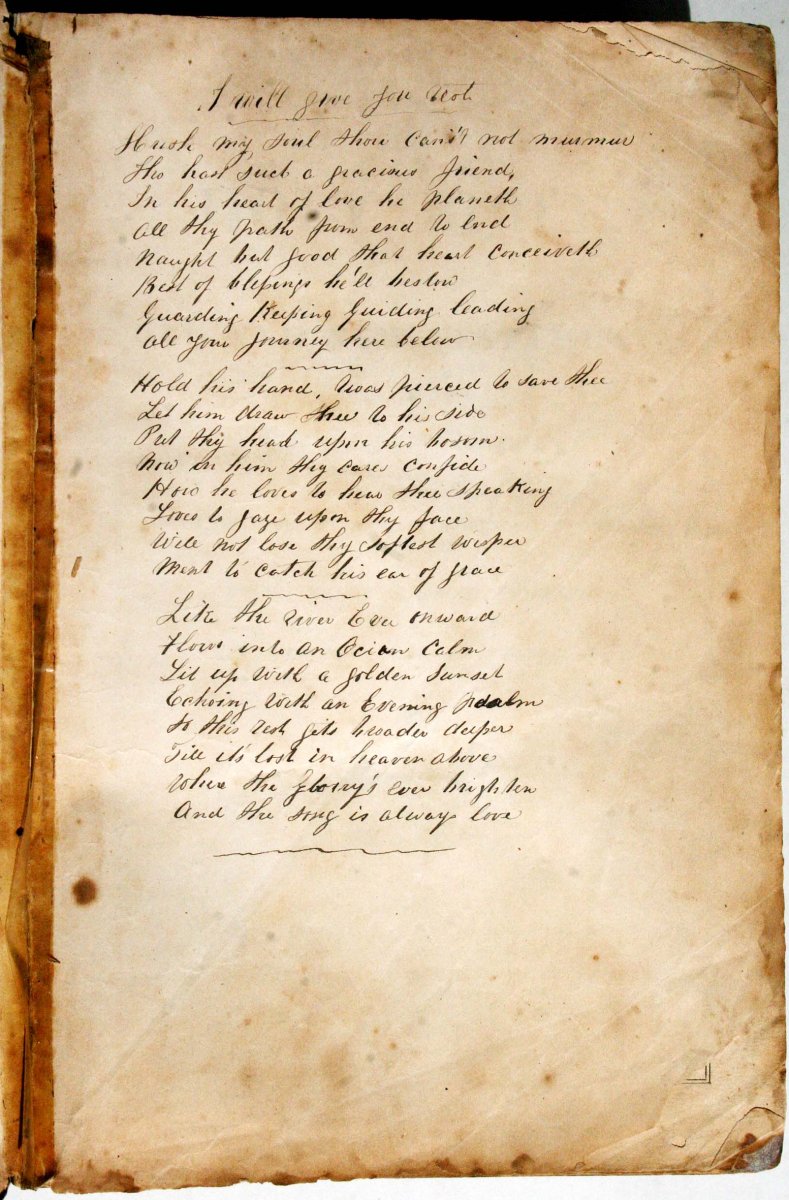 I will give you Rest
Hush my soul thou can'st not murmur
Tho hast such a gracious friend,
In his heart of love he planeth
All thy path from end to End
Naught but good that heart conceiveth
Best of blessings he'll bestow
Guarding Keeping Guiding leading
all your journey here below
Hold his hand, twas pierced to save thee
Let him draw thee to his side
Put thy head upon his bosom.
Now in him thy cares confide
How he loves to hear thee speaking
Loves to gaze upon thy face
Will not lose thy softest wisper
Ment to catch his ear of grace
Like the river Ever onward
Flows into an Ocian Calm
Lit up with a golden Sunset
Echoing with an Evening psalm
So this rest gets broader deeper
Till it's lost in heaven above
Where the glorry's ever brighten
And the song is always love